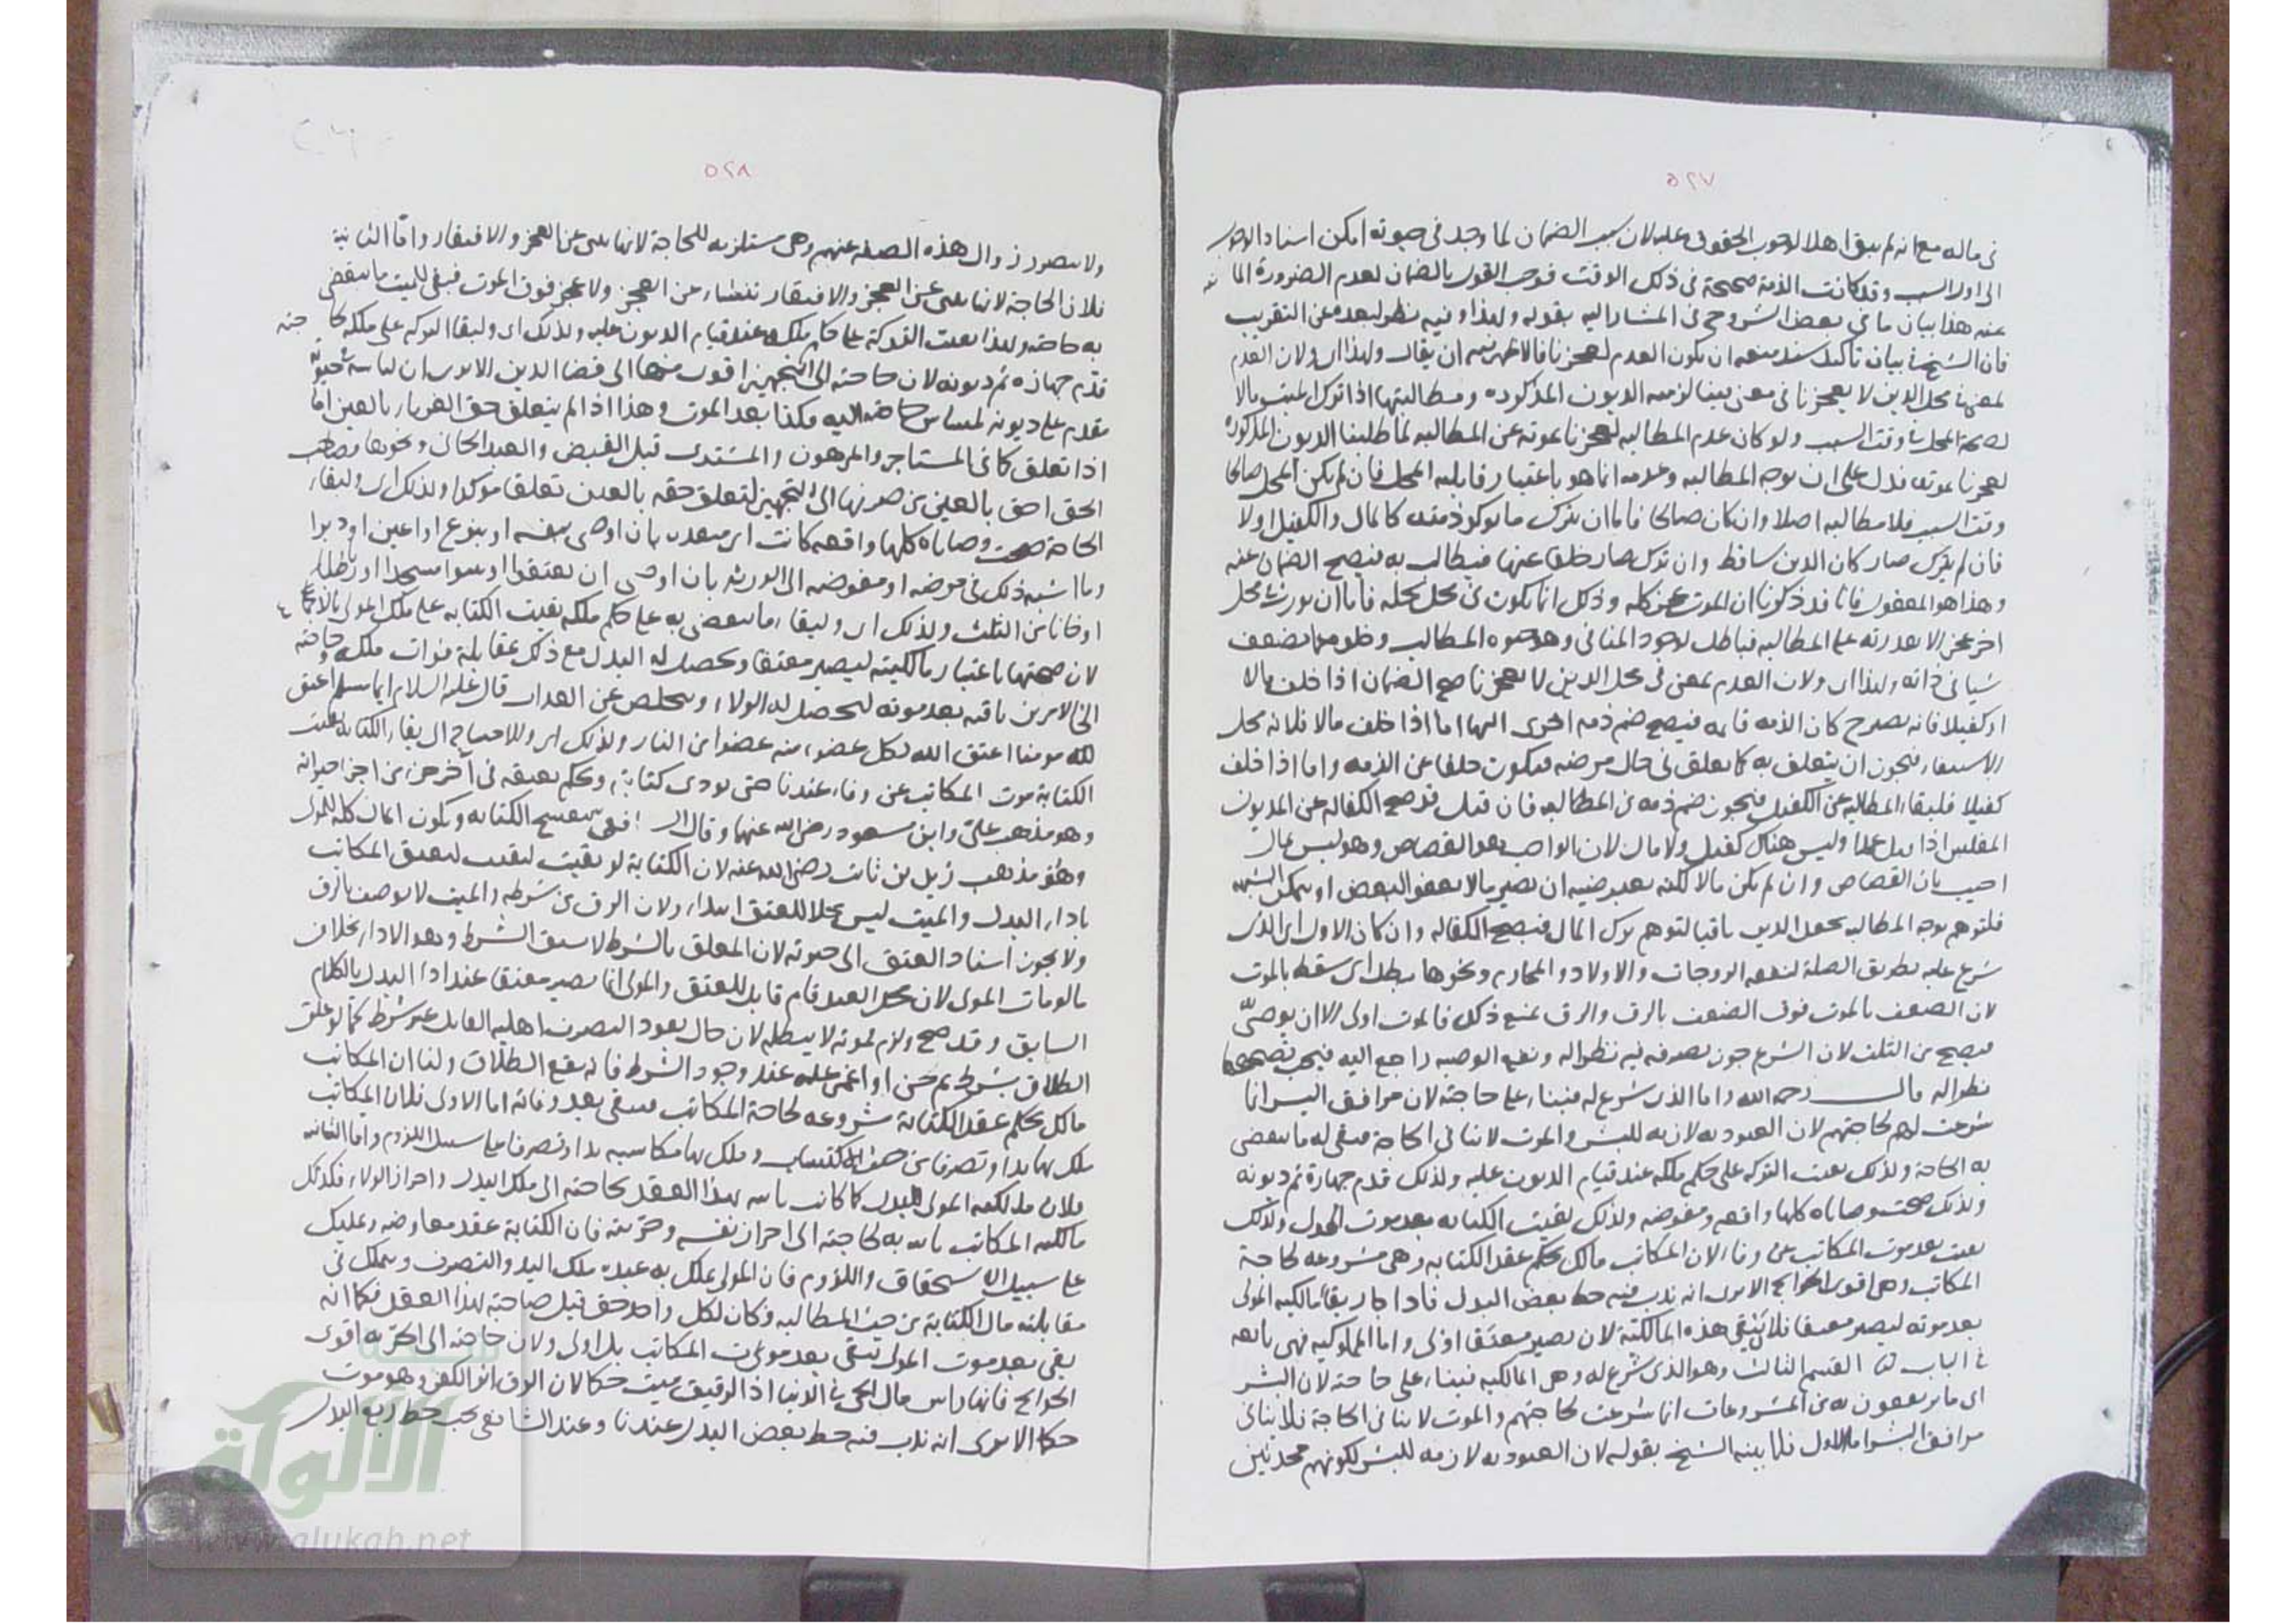 ٥٢٧
في ماله مع انه لم يبق اهلا لوجوب الحقوق عليه لان سبب الضمان لما وجد في حيوته امكن اسناد الوجوب
الى اول السبب وقد كانت الذمة صحيحة في ذلك الوقت فوجب القول بالضمان لعدم الضرورة المانعة
عنه هذا بيان ما في بعض الشروح في المشار اليه بقوله ولهذا وفيه نظر لبعده عن التقريب
فان الشيخ في بيان تاكيد سند منعه ان يكون العدم لعجزنا فالاظهر ان يقال ولهذا اي ولان العدم
لمعنى في محل الدين لا لعجزنا لزمته الديون المذكورة ومطالبتها اذا ترك الميت مالا
لصحة المحل في وقت السبب ولو كان عدم المطالبة لعجزنا بموته عن المطالبة لما طلبنا الديون المذكورة
لعجزنا بموته فدل على ان توجه المطالبة وعدمه انما هو باعتبار قابلية المحل فان لم يكن المحل صالحا
وقت السبب فلا مطالبة اصلا وان كان صالحا فاما ان يترك ما يؤكد ذمته كالمال والكفيل او لا
فان لم يترك صار كان الدين ساقط وان ترك صار خلفا عنها فيطالب به فيصح الضمان عنه
وهذا هو المعقول فانا قد ذكرنا ان الموت عجز كله وذلك انما يكون في محل يحله فاما ان يورث في محل
اخر عجزا لا يقدر به على المطالبة فباطل لوجود المنافي وهو حيوة المطالب وخلوه عما يضعف
شيا في ذاته ولهذا اي ولان العدم لمعنى في محل الدين لا لعجزنا صح الضمان اذا خلف مالا
او كفيلا فانه يصير ح كان الذمة قائمة فيصح ضم ذمة اخرى اليها اما اذا خلف مالا فلانه محل
الاستيفاء فيجوز ان يتعلق به كما تعلق في حال مرضه فيكون خلفا عن الذمة واما اذا خلف
كفيلا فلبقاء المطالبة عن الكفيل فيجوز ضم ذمة في المطالبة فان قيل قد صح الكفالة عن المديون
المفلس اذا قتل عمدا وليس هناك كفيل ولا مال لان الواجب هو القصاص وهو ليس بمال
اجيب بان القصاص وان لم يكن مالا لكنه بعرضية ان يصير مالا بعفو البعض او بتمكن الشبهة
فلتوهم توجه المطالبة يجعل الدين باقيا لتوهم ترك المال فيصح الكفالة وان كان الاول اي الذي
شرع عليه بطريق الصلة كنفقة الزوجات والاولاد والمحارم ونحوها بطل اي سقط بالموت
لان الضعف بالموت فوق الضعف بالرق والرق يمنع ذلك فالموت اولى الا ان يوصي
فيصح من الثلث لان الشرع جوز تصرفه فيه نظرا له ونفع الوصية راجع اليه فيجب تصحيحها
نظرا له قال رحمه الله واما الذي شرع له فبناء على حاجته لان مرافق البشر انما
شرعت لهم لحاجتهم لان العبودية لازمة للبشر والموت لا ينافي الحاجة فبقي له ما ينقضي
به الحاجة ولذلك بقيت التركة على حكم ملكه عند قيام الديون عليه ولذلك قدم جهازه ثم ديونه
ولذلك صحت وصاياه كلها واقعة ومفوضة ولذلك بقيت الكتابة بعد موت المولى ولذلك
بقيت بعد موت المكاتب عن وفاء لان المكاتب مالك بحكم عقد الكتابة وهي مشروعة لحاجة
المكاتب وهي اقوى الحوائج الا يرى انه ندب فيه حط بعض البدل فاذا جاز بقاء مالكية المولى
بعد موته ليصير معتقا فلان يبقى هذه المالكية لان يصير معتقا اولى واما المملوكية فهي تابعة
في الباب القسم الثالث وهو الذي شرع له وهي المالكية فبناء على حاجته لان البشر
اي ما يرتفقون به من المشروعات انما شرعت لحاجتهم والموت لا ينافي الحاجة فلا ينافي
مرافق البشر اما الاول فلما بينه الشيخ بقوله لان العبودية لازمة للبشر لكونهم محدثين
٥٢٨
ولا يتصور زوال هذه الصفة عنهم وهي مستلزمة للحاجة لانها تنبئ عن العجز والافتقار واما الثانية
فلان الحاجة لانها تنبئ عن العجز والافتقار تنشاء عن العجز ولا عجز فوق الموت فبقي للميت ما ينقضي
به حاجته ولهذا بقيت التركة على حكم ملكه عند قيام الديون عليه ولذلك اي ولبقاء التركة على ملكه لحاجته
قدم جهازه ثم ديونه لان حاجته الى التجهيز اقوى منها الى قضا الدين الا يرى ان لباسه في حيوته
مقدم على ديونه لمساس حاجته اليه فكذا بعد الموت وهذا اذا لم يتعلق حق الغير بالعين اما
اذا تعلق كما في المستاجر والمرهون والمشترى قبل القبض والعبد الجاني ونحوها فصاحب
الحق احق بالعين من صرفها الى التجهيز لتعلق حقه بالعين تعلقا مؤكدا ولذلك اي ولبقاء
الحاجة صحت وصاياه كلها واقعة كانت اي منفذة بان اوصى بنفسه او بنوع او اعين او دبر
وما اشبه ذلك في مرضه او مفوضة الى الورثة بان اوصى ان يعتقوا او يبنوا مسجدا او رباطا
او خانا من الثلث ولذلك اي ولبقاء ما ينقضي به على حكم ملكه بقيت الكتابة على ملك المولى بالاجماع
لان صحتها باعتبار مالكيته ليصير معتقا ويحصل له البدل مع ذلك بمقابلة فوات ملكه وحاجته
الى الامرين باقية بعد موته ليحصل له الولاء ويتخلص عن العذاب قال عليه السلام ايما مسلم اعتق
لله مومنا اعتق الله بكل عضو منه عضوا من النار ولذلك اي وللاحتياج الى بقاء الكتابة بقيت
الكتابة بموت المكاتب عن وفاء عندنا حتى يؤدى كتابته ويحكم بعتقه في آخر جزء من اجزاء حيوته
وهو مذهب علي وابن مسعود رضي الله عنهما وقال الشافعي تنفسخ الكتابة ويكون المال كله للمولى
وهو مذهب زيد بن ثابت رضي الله عنه لان الكتابة لو بقيت لبقيت ليعتق المكاتب
باداء البدل والميت ليس محلا للعتق ابتداء ولان الرق من شرطه والميت لا يوصف بالرق
ولا يجوز اسناد العتق الى حيوته لان المعلق بالشرط لا يسبق الشرط وهو الاداء بخلاف
ما لو مات المولى لان محل العبد قائم قابل للعتق والمولى انما يصير معتقا عند اداء البدل بالكلام
السابق وقد صح ولزم بموته لا يبطله لان حال نفوذ التصرف اهلية القائل غير شرط كما لو علق
الطلاق بشرط ثم جن او اغمي عليه عند وجود الشرط فانه يقع الطلاق ولنا ان المكاتب
مالك بحكم عقد الكتابة مشروعة لحاجة المكاتب فيبقى بعد وفاته اما الاولى فلان المكاتب
ملك بها يدا وتصرفا من حيث الاكتساب وملك بها مكاسبه يدا وتصرفا على سبيل اللزوم واما الثانية
فلان مالكية المولى للبدل كما كانت ثابتة بهذا العقد لحاجته الى ملك البدل واحراز الولاء فكذلك
مالكية المكاتب ثابتة به لحاجته الى احراز نفسه وحريته فان الكتابة عقد معاوضة وتمليك
على سبيل الاستحقاق واللزوم فان المولى يملك به عبده ملك اليد والتصرف ويتملك في
مقابلته مال الكتابة من حيث المطالبة وكان لكل واحد حق قبل صاحبه بهذا العقد فكما انه
بقي بعد موت المولى تبقى بعد موت المكاتب بل اولى ولان حاجته الى الحرية اقوى
الحوائج فانها راس مال الحي في الدنيا اذ الرقيق ميت حكما لان الرق اثر الكفر وهو موت
حكما الا يرى انه ندب فيه حط بعض البدل عندنا وعند الشافعي يجب حط ربع البدل
شبكة
الألوكة
www.alukah.net